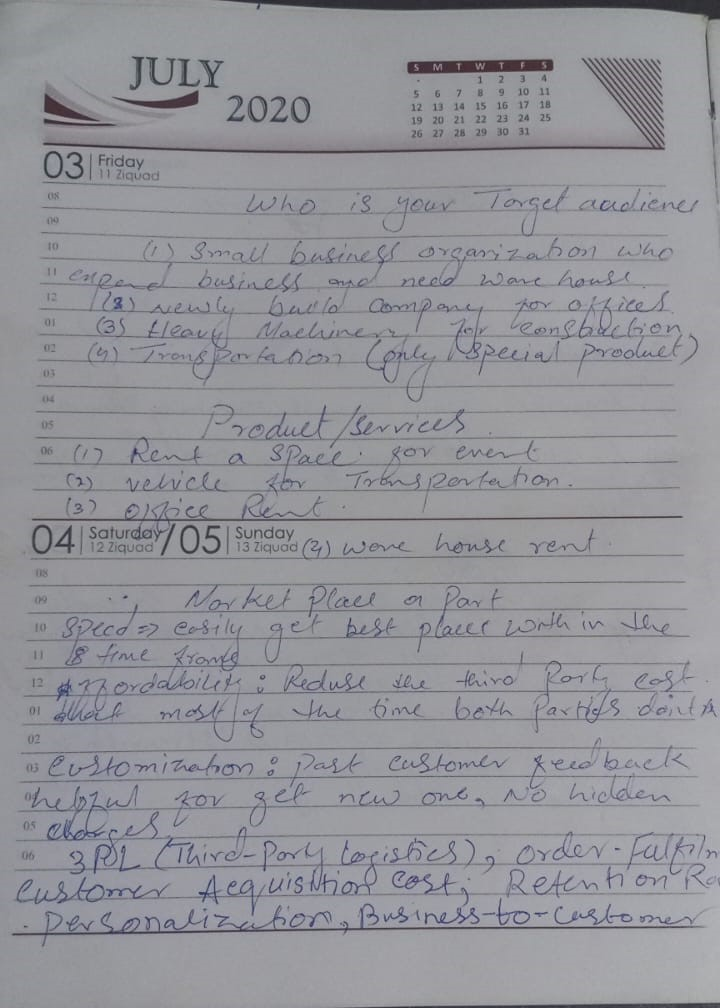 JULY
2020
S M T W T F S
1 2 3 4
5 6 7 8 9 10 11
12 13 14 15 16 17 18
19 20 21 22 23 24 25
26 27 28 29 30 31
03 Friday
11 Ziquad
08 Who is your Target audience
09
10 (1) Small business organization who
11 expend business and need ware house.
12 (2) Newly build company for offices.
01 (3) Heavy Machinery for constuction
02 (4) Transportation (only special product)
03
04
05 Product/services
06 (1) Rent a space for event
(2) vehicle for Transportation.
(3) office Rent.
04 Saturday 12 Ziquad / 05 Sunday 13 Ziquad (4) ware house rent.
08
09 Market Place a Part
10 Speed => easily get best place with in the
11 time frame
12 Affordability: Reduse the third Party cost
01 that most of the time both Parties don't
02
03 Customization: past customer feedback
04 helpful for get new one, No hidden
05 charges
06 3PL (Third-Party Logistics), Order-Fulfilm
Customer Acquisition cost, Retention Ra
Personalization, Business-to-customer